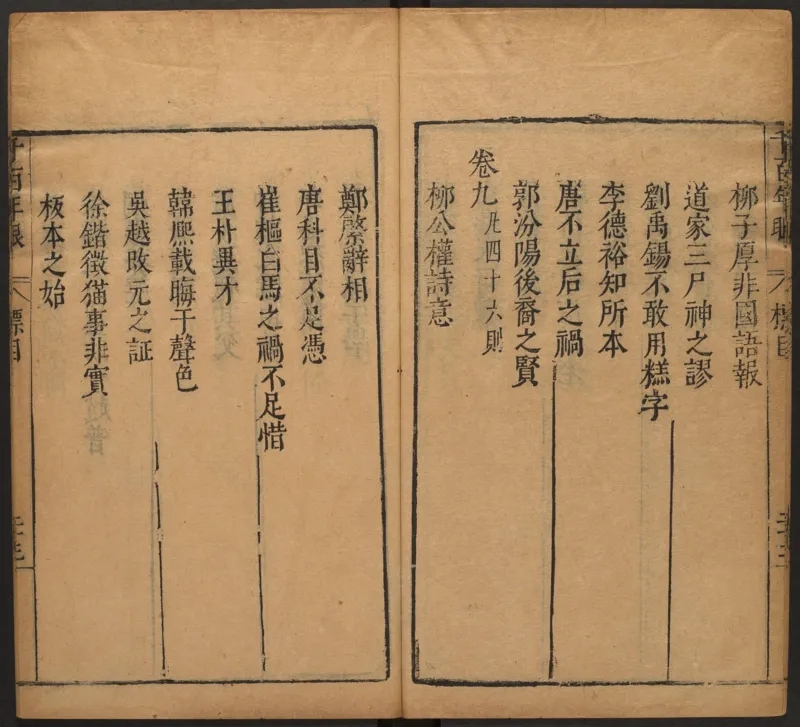 柳子厚非國語報
道家三尸神之謬
劉禹錫不敢用糕字
李德裕知所本
唐不立后之禍
郭汾陽後裔之賢
卷九 凡四十六則
柳公權詩意
鄭綮辭相
唐科目不足憑
崔樞白馬之禍不足惜
王朴異才
韓熙載晦于聲色
吳越改元之証
徐鍇徵猫事非實
板本之始
千百年眼 八 標目